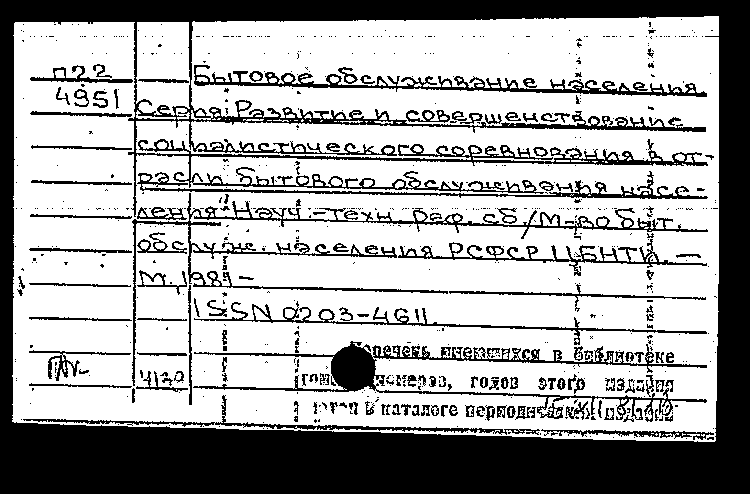 П22
4951
Бытовое обслуживание населения.
Серия: Развитие и совершенствование
социалистического соревнования в от-
расли бытового обслуживания насе-
ления: Науч.-техн. реф. сб./М-во быт.
обслуж. населения РСФСР. ЦБНТИ. —
М., 1981 –
ISSN 0203-4611.
Перечень имеющихся в библиотеке
номеров, годов этого издания
в каталоге периодических изданий
4130